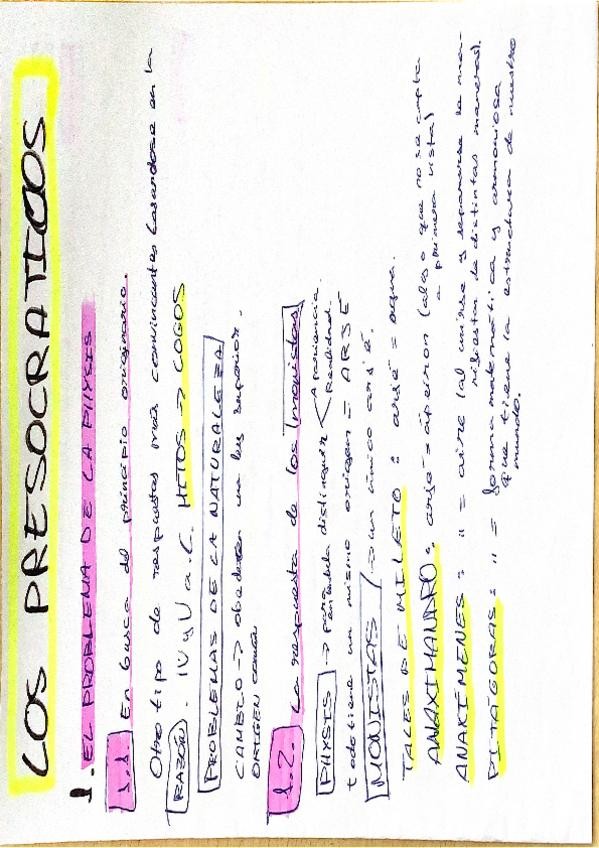 LOS PRESOCRATICOS
1. EL PROBLEMA DE LA PHYSIS
1.1. En busca del principio originario.
Otro tipo de respuestas más convincentes basandose en la
RAZÓN. IV y V a.C. MITOS -> LOGOS
PROBLEMAS DE LA NATURALEZA
CAMBIO -> obedecen una ley superior.
ORIGEN común
1.2. La respuesta de los monistas
PHYSIS -> para entenderla distinguir < Apariencia. Realidad.
todo tiene un mismo origen = ARJÉ
MONISTAS -> un único arjé.
TALES DE MILETO: arjé = agua.
ANAXIMANDRO: arjé = ápeiron (algo que no se capta
a primera vista)
ANAXÍMENES: " = aire (al unirse y separarse la ma-
de distintas maneras).
PITÁGORAS: " = forma matemática y armoniosa
que tiene la estructura de nuestro
mundo.